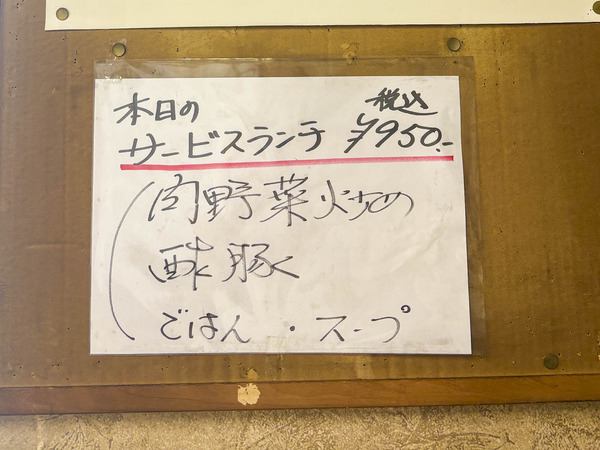 本日の 税込
サービスランチ ¥950.-
肉野菜炒め
酢豚
ごはん ・ スープ